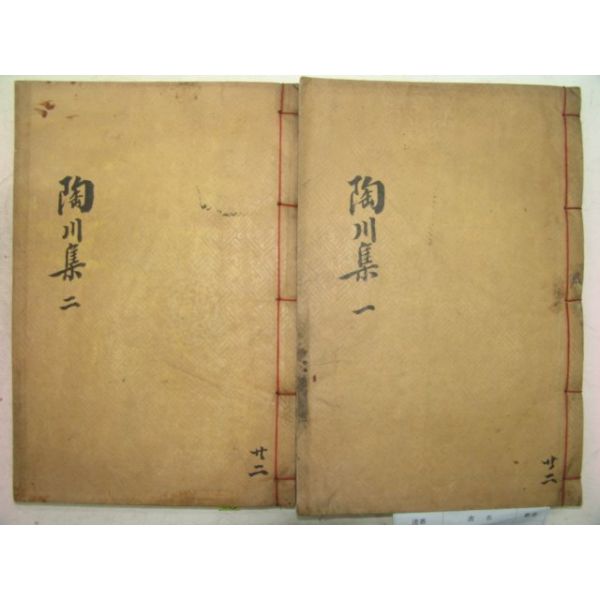 陶川集 一
廾二
陶川集 二
廾二